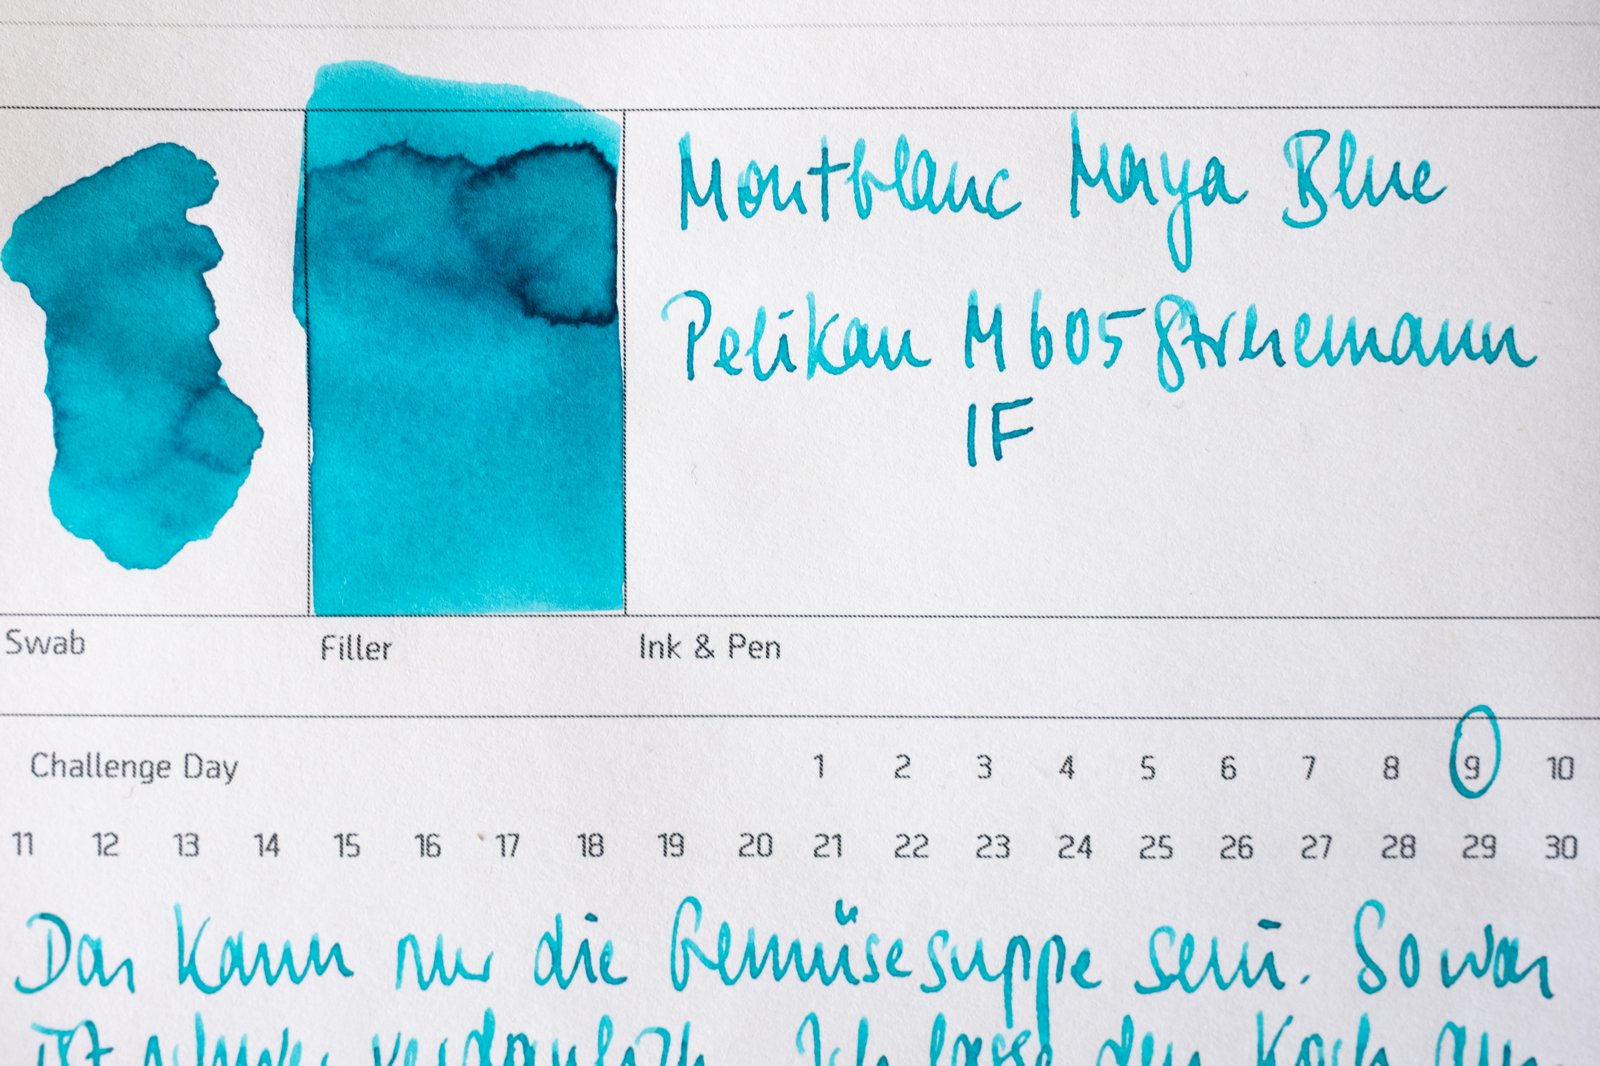 Montblanc Maya Blue
Pelikan M605 Stresemann
IF
Swab Filler Ink & Pen
Challenge Day 1 2 3 4 5 6 7 8 9 10
11 12 13 14 15 16 17 18 19 20 21 22 23 24 25 26 27 28 29 30
Das kann nur die Gemüsesuppe sein. Sowas
ist schwer verdaulich. Ich lasse den Koch aus